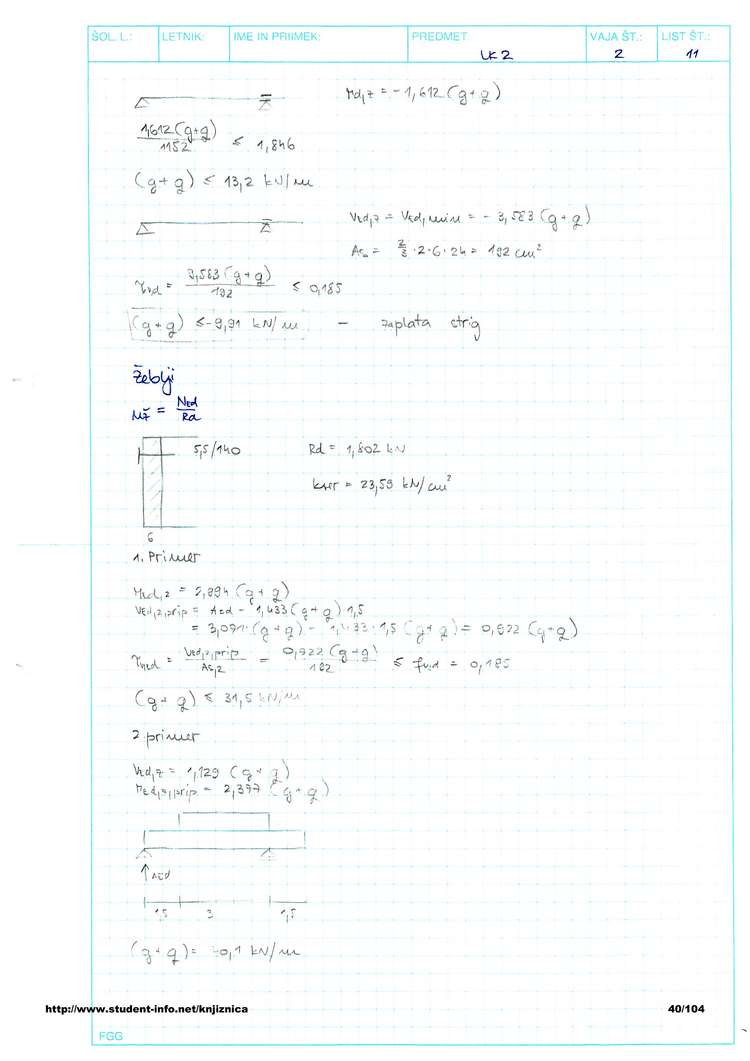 ŠOL. L.: LETNIK: IME IN PRIIMEK: PREDMET VAJA ŠT.: LIST ŠT.:
LK 2 2 11
Md,z = - 1,612 (g+q)
1,612 (g+q) / 1152 ≤ 1,846
(g+q) ≤ 13,2 kN/m
VEd,z = VEd,min = - 3,583 (g+q)
As = 2/3 · 2 · 6 · 24 = 192 cm²
τvd = 3,583 (g+q) / 192 ≤ 0,185
(g+q) ≤ 9,91 kN/m - zaplata strig
Žeblji
nž = NEd / Rd
5,5/140 Rd = 1,802 kN
kser = 23,59 kN/cm²
6
1. Primer
MEd,z = 2,894 (g+q)
VEd,z,prip = AEd - 1,433 (g+q) 1,5
= 3,071 · (g+q) - 1,433 · 1,5 (g+q) = 0,922 (g+q)
τMed = VEd,z,prip / As,z = 0,922 (g+q) / 192 ≤ fv,d = 0,185
(g+q) ≤ 31,5 kN/m
2 primer
VEd,z = 1,129 (g+q)
MEd,z,prip = 2,377 (g+q)
↑ AEd
1,5 3 1,5
(g+q) = 40,1 kN/m
http://www.student-info.net/knjiznica 40/104
FGG